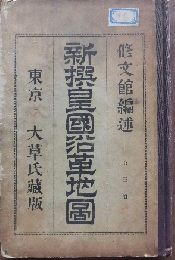 修文館編述
新撰皇國沿革地圖
東京 大草氏藏版